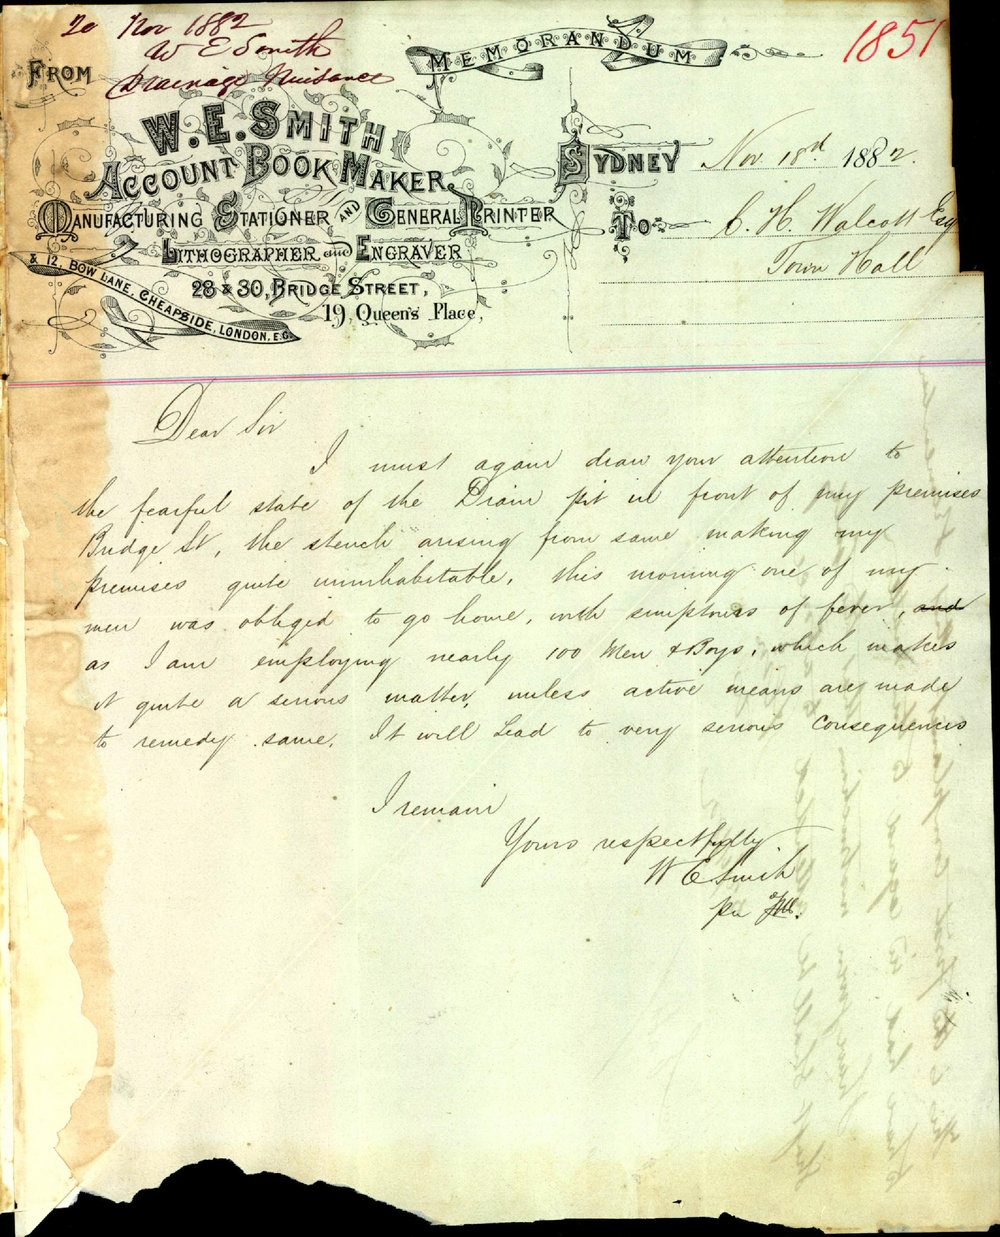 20 Nov 1882
W E Smith
Drainage Nuisance
1851
MEMORANDUM
FROM
W. E. SMITH
ACCOUNT BOOK MAKER
MANUFACTURING STATIONER AND GENERAL PRINTER
LITHOGRAPHER and ENGRAVER
28 & 30, BRIDGE STREET,
19, Queen's Place,
& 12, BOW LANE, CHEAPSIDE, LONDON, E.C.
SYDNEY Nov 18th 1882.
To C. H. Walcott Esq
Town Hall
Dear Sir
I must again draw your attention to
the fearful state of the Drain pit in front of my premises
Bridge St, the stench arising from same making my
premises quite uninhabitable, this morning one of my
men was obliged to go home, with simptoms of fever, and
as I am employing nearly 100 Men & Boys, which makes
it quite a serious matter, unless active means are made
to remedy same. It will Lead to very serious Consequences
I remain
Yours respectfully
W E Smith
per